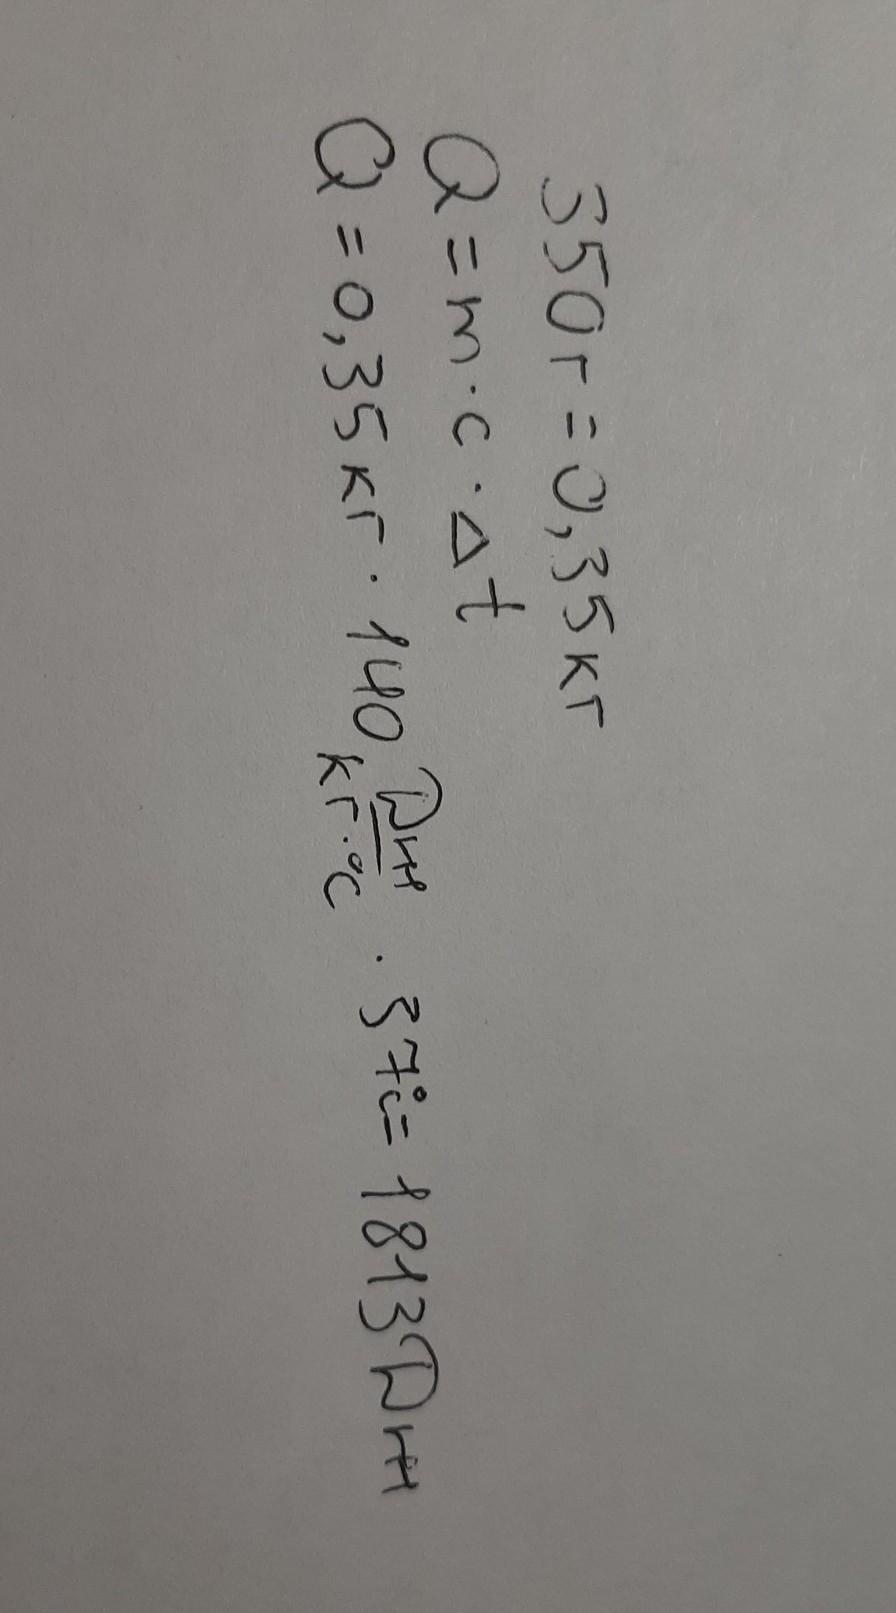 350г = 0,35кг
Q = m · c · Δt
Q = 0,35кг · 140 Дж/кг·°C · 37°C = 1813Дж